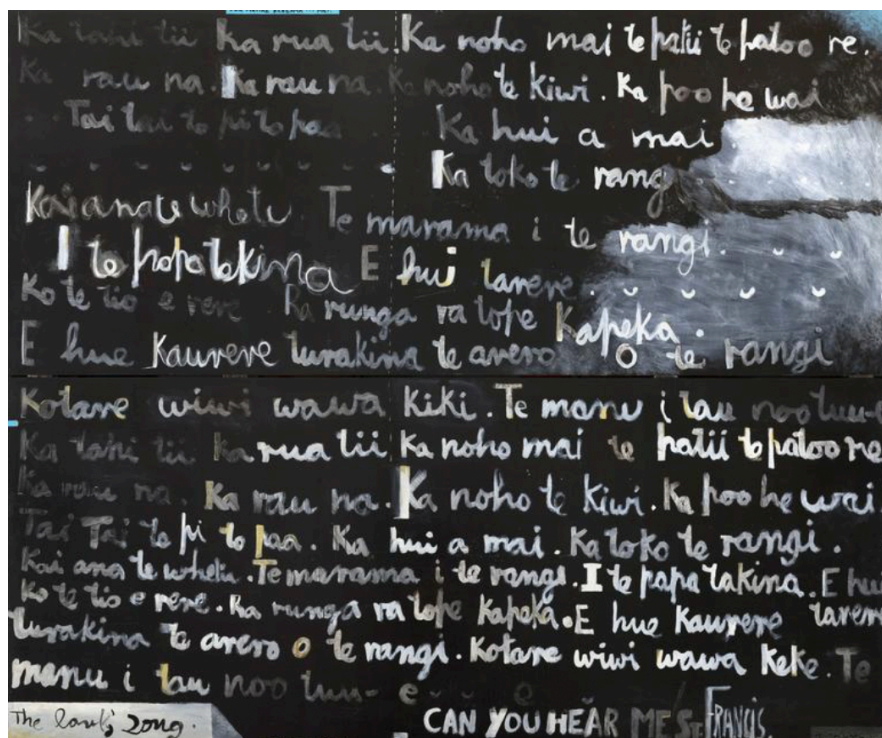 Ka tahi tii Ka rua tii. Ka noho mai te patii te patoo re.
Ka rau na. Ka rau na. Ka noho te kiwi. Ka poo he wai
Tai tai to pi to paa Ka hui a mai
Ka toko te rang
Kai ana te whetu Te marama i te rangi.
I te papa tekina E hui tarere.
Ko te tio e rere Ra runga ra tope Kapeka.
E hue Kaurere turakina te arero o te rangi
Kotare wiwi wawa kiki. Te manu i tau noo tuu-e
Ka tahi tii Ka rua tii Ka noho mai te patii te patoo re
Ka rau na. Ka rau na. Ka noho te kiwi. Ka poo he wai.
Tai Tai te pi to paa. Ka hui a mai. Ka toko te rangi.
Kai ana te whetu. Te marama i te rangi. I te papa takina. E hui
Ko te tio e rere. Ra runga ra tope Kapeka. E hue Kaurere tarere
turakina te arero o te rangi. Kotare wiwi wawa Keke. Te
manu i tau noo tuu- e
The lark's song. CAN YOU HEAR ME ST. FRANCIS.